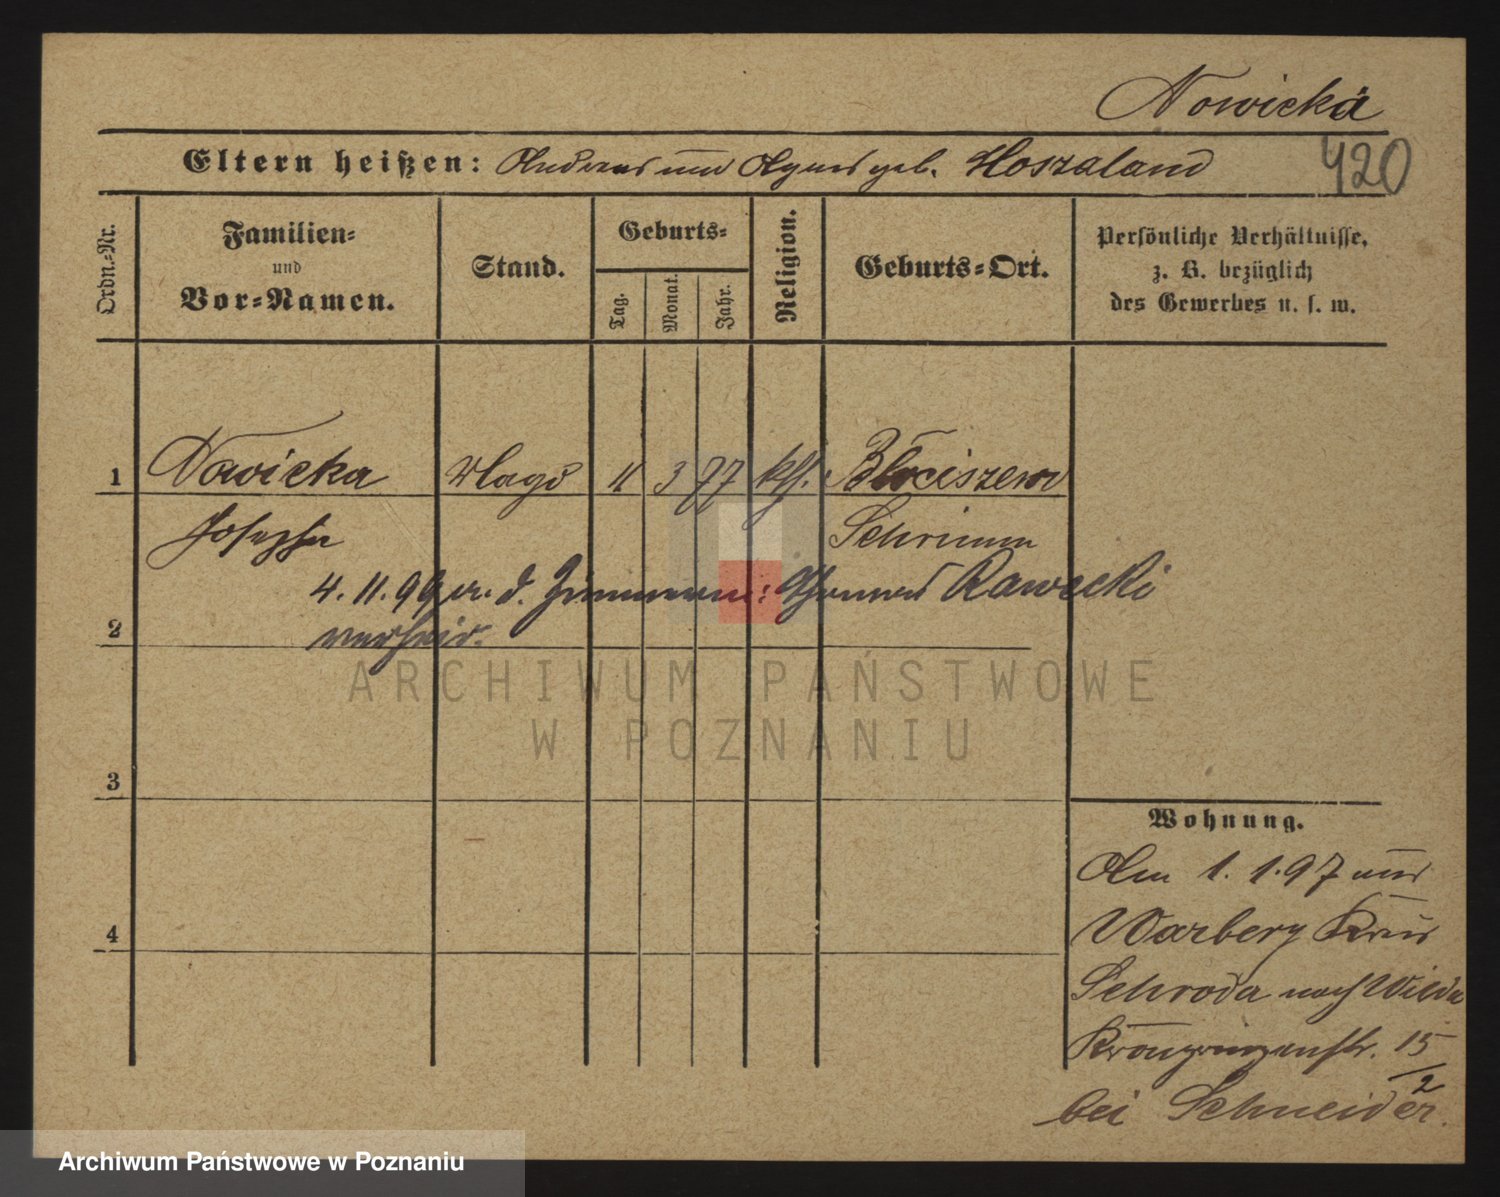 Nowicka
Eltern heißen: Andreas und Agnes geb. Koszaland
420
Ordn.-Nr.
Familien-
und
Vor-Namen.
Stand.
Geburts-
Tag.
Monat.
Jahr.
Religion.
Geburts-Ort.
Persönliche Verhältnisse,
z. B. bezüglich
des Gewerbes u. s. w.
1 Nowicka Magd 11 3 77 kth. Błociszewo
Josepha Schrimm
4. 11. 99 d. Zimmerm: Thomas Rawecki
2 verheir.
3
4
Wohnung.
Am 1. 1. 97 aus
Warberg Kreis
Schroda nach Wilda
Kronprinzenstr. 15
2
bei Schneider.
ARCHIWUM PAŃSTWOWE
W POZNANIU
Archiwum Państwowe w Poznaniu